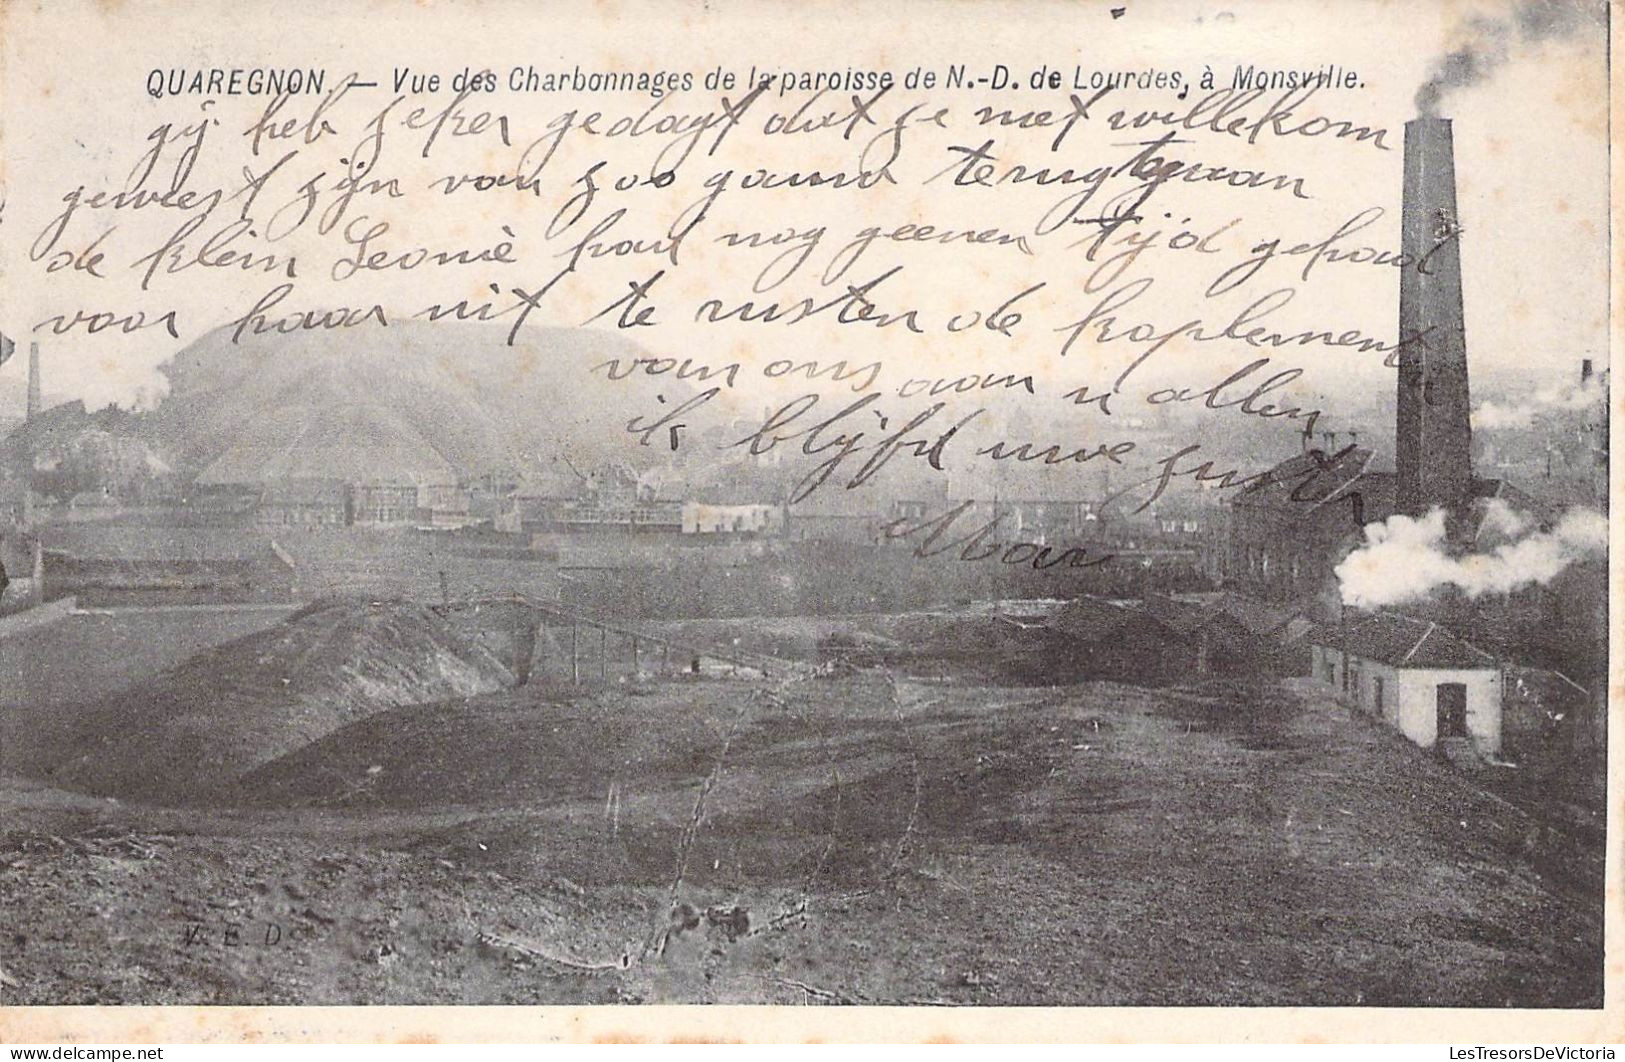 QUAREGNON. — Vue des Charbonnages de la paroisse de N.-D. de Lourdes, à Monsville.
gij heb zeker gedagt dat je niet willekom
geweest zijn van zoo gauw terug te gaan
de klein Leonie had nog geenen tijd gehad
voor haar uit te rusten de koplement
van ons aan u allen
ik blijf uwe zuster
V. E. D.
LesTresorsDeVictoria